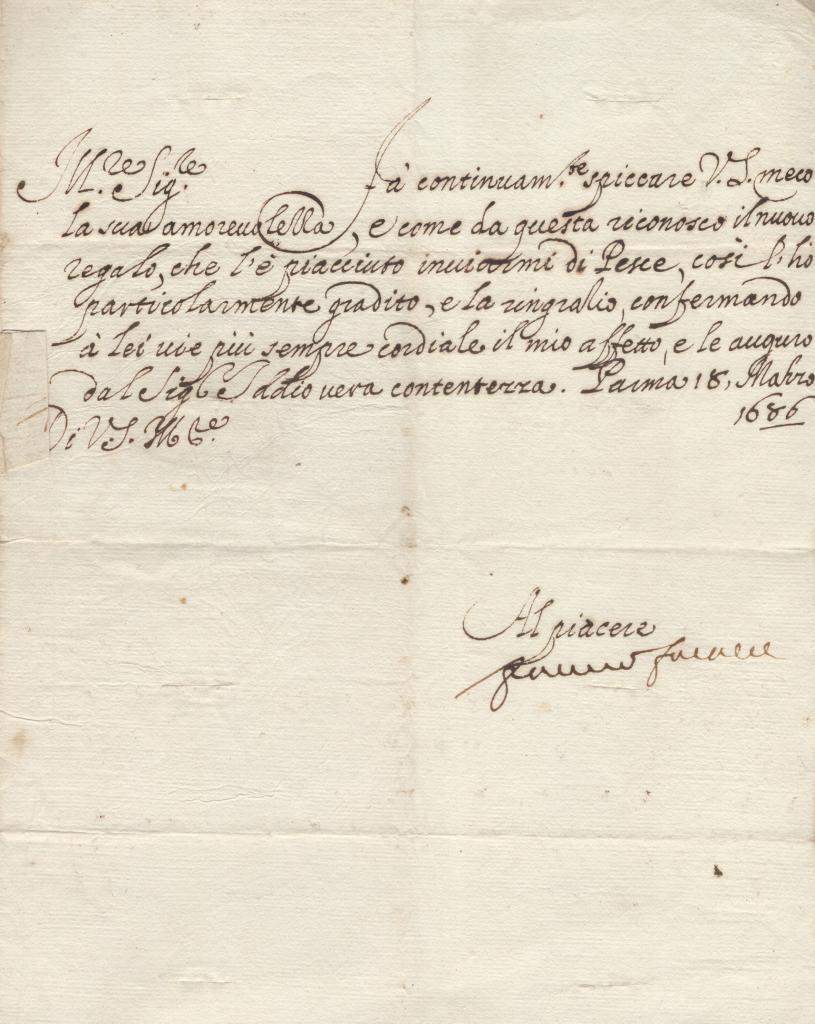 M.re Sig.re Fà continuam.te spiccare V.S. meco
la sua amorevolezza, e come da questa riconosco il nuovo
regalo, che l'è piacciuto inviarmi di Pesce, così l'hò
particolarmente gradito, e la ringratio, confermando
à lei vie più sempre cordiale il mio affetto, e le auguro
dal Sig.re Iddio vera contentezza. Parma 18, Marzo
1686
Di V.S. M
Al piacere